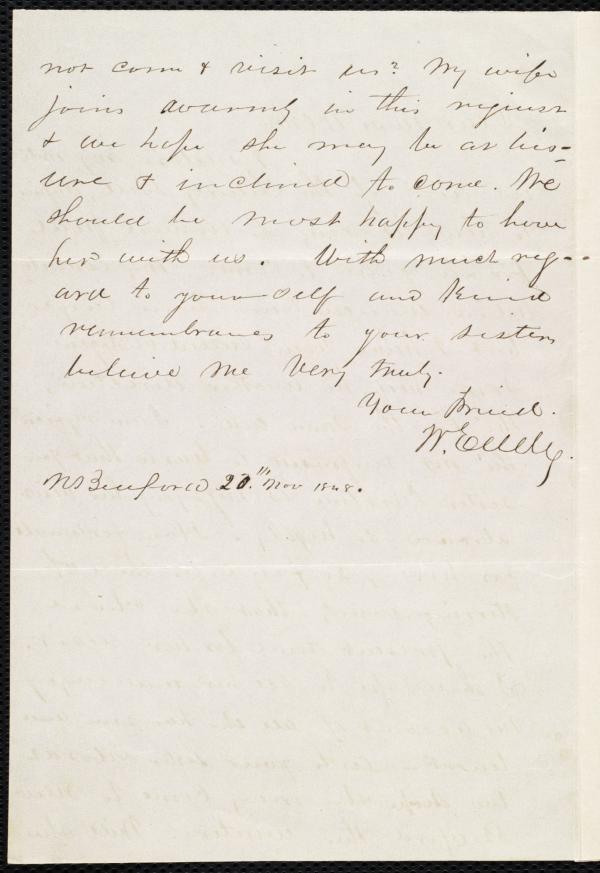 not come & visit us? My wife
joins warmly in this request
& we hope she may be at leis-
ure & inclined to come. We
should be most happy to have
her with us. With much reg-
ard to yourself and kind
remembrances to your sisters
believe me Very truly.
Your Friend.
N. Bedford 20th Nov 1848.